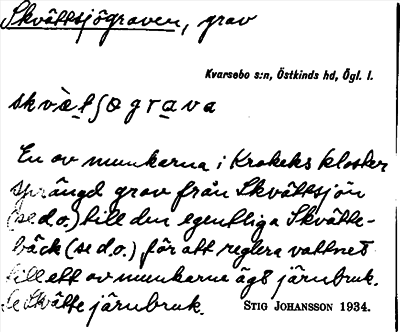 Skvättsjögraven, grav
Kvarsebo s:n, Östkinds hd, Ögl. l.
skvὲtʃøgrava
En av munkarna i Krokeks kloster
sprängd grav från Skvättsjön
(se d.o.) till den egentliga Skvätte-
bäck (se d.o.), för att reglera vattnet
till ett av munkarna ägt järnbruk.
Se Skvätte järnbruk. STIG JOHANSSON 1934.